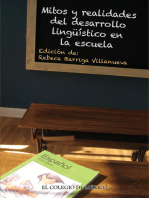 Mitos y realidades
del desarrollo
lingüístico en
la escuela
Edición de:
Rebeca Barriga Villanueva
Español
EL COLEGIO DE MÉXICO